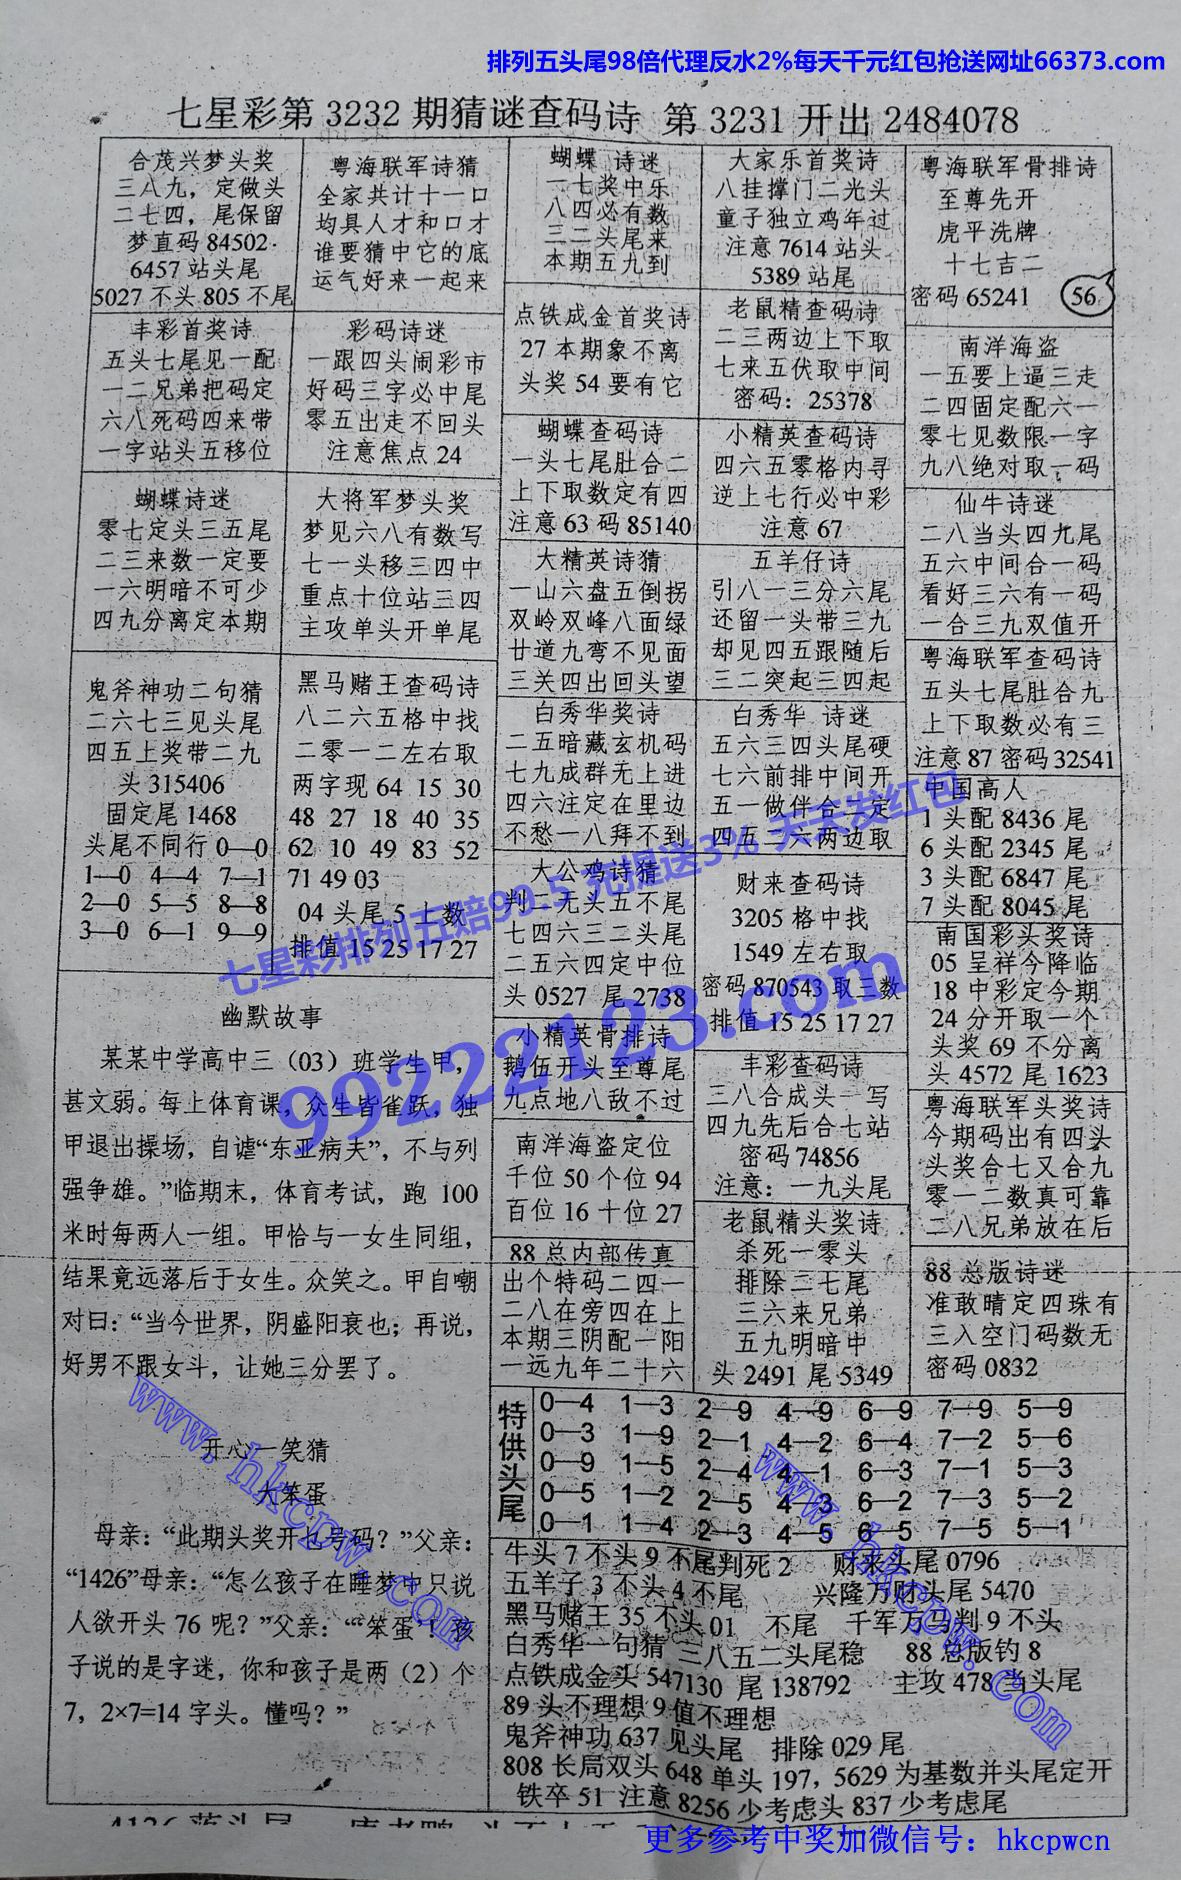 排列五头尾98倍代理反水2%每天千元红包抢送网址66373.com
七星彩第3232期猜谜查码诗 第3231开出2484078
合茂兴梦头奖
三八九，定做头
二七四，尾保留
梦直码84502.
6457站头尾
5027不头805不尾
粤海联军诗猜
全家共计十一口
均具人才和口才
谁要猜中它的底
运气好来一起来
蝴蝶 诗迷
一七奖中乐
八四必有数
三二头尾来
本期五九到
大家乐首奖诗
八挂撑门二光头
童子独立鸡年过
注意7614站头
5389站尾
粤海联军骨排诗
至尊先开
虎平洗牌
十七吉二
密码65241 56
丰彩首奖诗
五头七尾见一配
一二兄弟把码定
六八死码四来带
一字站头五移位
彩码诗迷
一跟四头闹彩市
好码三字必中尾
零五出走不回头
注意焦点24
点铁成金首奖诗
27本期象不离
头奖54要有它
老鼠精查码诗
二三两边上下取
七来五伏取中间
密码：25378
南洋海盗
一五要上逼三走
二四固定配六一
零七见数限一字
九八绝对取一码
蝴蝶查码诗
一头七尾肚合二
上下取数定有四
注意63码85140
小精英查码诗
四六五零格内寻
逆上七行必中彩
注意67
蝴蝶诗迷
零七定头三五尾
二三来数一定要
一六明暗不可少
四九分离定本期
大将军梦头奖
梦见六八有数写
七一头移三四中
重点十位站三四
主攻单头开单尾
仙牛诗迷
二八当头四九尾
五六中间合一码
看好三六有一码
一合三九双值开
大精英诗猜
一山六盘五倒拐
双岭双峰八面绿
廿道九弯不见面
三关四出回头望
五羊仔诗
引八一三分六尾
还留一头带三九
却见四五跟随后
三二突起三四起
粤海联军查码诗
五头七尾肚合九
上下取数必有三
注意87密码32541
鬼斧神功二句猜
二六七三见头尾
四五上奖带二九
头315406
固定尾1468
头尾不同行0—0
1—0 4—4 7—1
2—0 5—5 8—8
3—0 6—1 9—9
黑马赌王查码诗
八二六五格中找
二零一二左右取
两字现64 15 30
48 27 18 40 35
62 10 49 83 52
71 49 03
04头尾5上数
排值15 25 17 27
白秀华奖诗
二五暗藏玄机码
七九成群无上进
四六注定在里边
不愁一八拜不到
白秀华 诗迷
五六三四头尾硬
七六前排中间开
五一做伴合二定
四五二六两边取
中国高人
1头配8436尾
6头配2345尾
3头配6847尾
7头配8045尾
大公鸡诗猜
判二无头五不尾
七四六三二头尾
二五六四定中位
头0527 尾2738
财来查码诗
3205格中找
1549左右取
密码870543取三数
排值15 25 17 27
南国彩头奖诗
05呈祥今降临
18中彩定今期
24分开取一个
头奖69不分离
头4572尾1623
七星彩排列五赔99.5 充提送3% 天天发红包
99222123.com
小精英骨排诗
鹅伍开头至尊尾
九点地八敌不过
丰彩查码诗
三八合成头一写
四九先后合七站
密码74856
注意：一九头尾
粤海联军头奖诗
今期码出有四头
头奖合七又合九
零一二数真可靠
二八兄弟放在后
南洋海盗定位
千位50个位94
百位16十位27
老鼠精头奖诗
杀死一零头
排除二七尾
三六来兄弟
五九明暗中
头2491尾5349
88总内部传真
出个特码二四一
二八在旁四在上
本期三阴配一阳
一远九年二十六
88总版诗迷
准敢晴定四珠有
三入空门码数无
密码0832
幽默故事
某某中学高中三（03）班学生甲，
甚文弱。每上体育课，众生皆雀跃，独
甲退出操场，自谑“东亚病夫”，不与列
强争雄。”临期末，体育考试，跑100
米时每两人一组。甲恰与一女生同组，
结果竟远落后于女生。众笑之。甲自嘲
对曰：“当今世界，阴盛阳衰也；再说，
好男不跟女斗，让她三分罢了。
www.hkcpw.com
开心一笑猜
大笨蛋
母亲：“此期头奖开乜号码？”父亲：
“1426”母亲：“怎么孩子在睡梦中只说
人欲开头76呢？”父亲：“‘笨蛋’！孩
子说的是字迷，你和孩子是两（2）个
7，2×7=14字头。懂吗？”
特供头尾
0—4 1—3 2—9 4—9 6—9 7—9 5—9
0—3 1—9 2—1 4—2 6—4 7—2 5—6
0—9 1—5 2—4 4—1 6—3 7—1 5—3
0—5 1—2 2—5 4—3 6—2 7—3 5—2
0—1 1—4 2—3 4—5 6—5 7—5 5—1
www.hkcpw.com
牛头7不头9不尾判死2 财来头尾0796
五羊子3不头4不尾 兴隆万财头尾5470
黑马赌王35不头01 不尾 千军万马判9不头
白秀华一句猜 三八五二头尾稳 88总版钓8
点铁成金头547130 尾138792 主攻478当头尾
89头不理想9值不理想
鬼斧神功637见头尾 排除029尾
808长局双头648单头197，5629为基数并头尾定开
铁卒51 注意8256少考虑头837少考虑尾
更多参考中奖加微信号：hkcpwcn